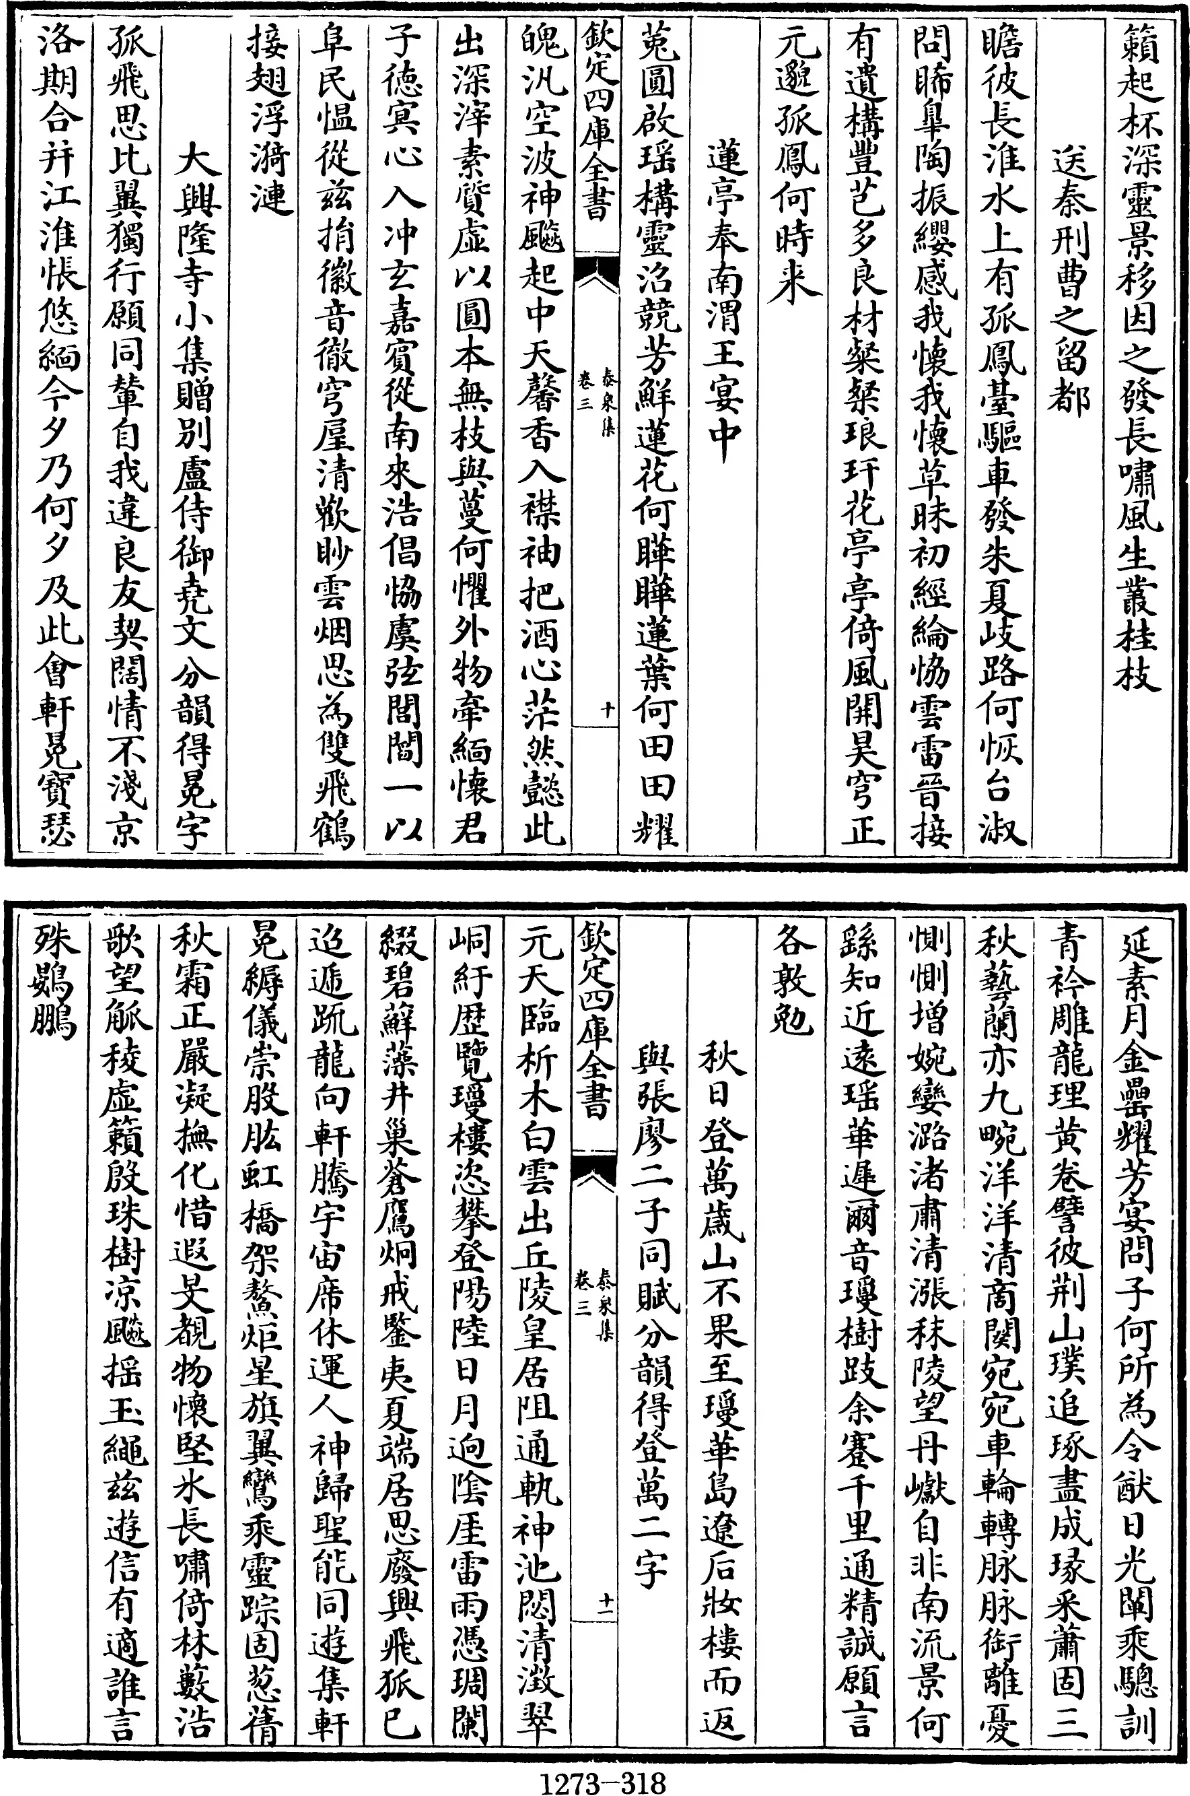 籟起杯深靈景移因之發長嘯風生叢桂枝
送秦刑曹之留都
瞻彼長淮水上有孤鳳臺驅車發朱夏岐路何恢台淑
問睎臯陶振纓感我懷我懷草昧初經綸恊雲雷晉接
有遺構豐芑多良材粲粲琅玕花亭亭倚風開昊穹正
元邈孤鳳何時来
蓮亭奉南渭王宴中
菟圓啟瑶構靈沼競芳鮮蓮花何曄曄蓮葉何田田耀
欽定四庫全書
泰泉集
卷三
十
魄汎空波神飈起中天馨香入襟袖把酒心茫然懿此
出深滓素質虛以圓本無枝與蔓何懼外物牽緬懷君
子徳㝠心入冲玄嘉賓從南來浩倡恊虞弦誾誾一以
阜民愠從兹捐徽音徹穹屋清歡眇雲烟思為雙飛鶴
接翅浮漪漣
大興隆寺小集贈别盧侍御堯文分韻得冕字
孤飛思比翼獨行願同輦自我違良友契闊情不淺京
洛期合并江淮悵悠緬今夕乃何夕及此會軒冕寶瑟
延素月金罍耀芳宴問子何所為令猷日光闡乘驄訓
青衿雕龍理黄卷譬彼荆山璞追琢盡成瑑采蕭固三
秋藝蘭亦九畹洋洋清商闋宛宛車輪轉脉脉銜離憂
惻惻增婉孌潞渚肅清漲秣陵望丹巘自非南流景何
繇知近遠瑶華遲爾音瓊樹跂余蹇千里通精誠願言
各敦勉
秋日登萬歲山不果至瓊華島遼后妝樓而返
與張廖二子同賦分韻得登萬二字
欽定四庫全書
泰泉集
卷三
十一
元天臨析木白雲出丘陵皇居阻通軌神池閟清澂翠
峒紆歴覽瓊樓恣攀登陽陸日月逈陰厓雷雨憑琱闌
綴碧蘚藻井巢蒼鷹炯戒鑒夷夏端居思廢興飛狐已
迢遞疏龍向軒騰宇宙席休運人神歸聖能同遊集軒
冕縟儀崇股肱虹橋架鰲炬星旗翼鸞乘靈踪固葱蒨
秋霜正嚴凝撫化惜遐旻覩物懷堅氷長嘯倚林藪浩
歌望觚稜虛籟殷珠樹凉飈揺玉繩兹遊信有適誰言
殊鷃鵬
1273-318